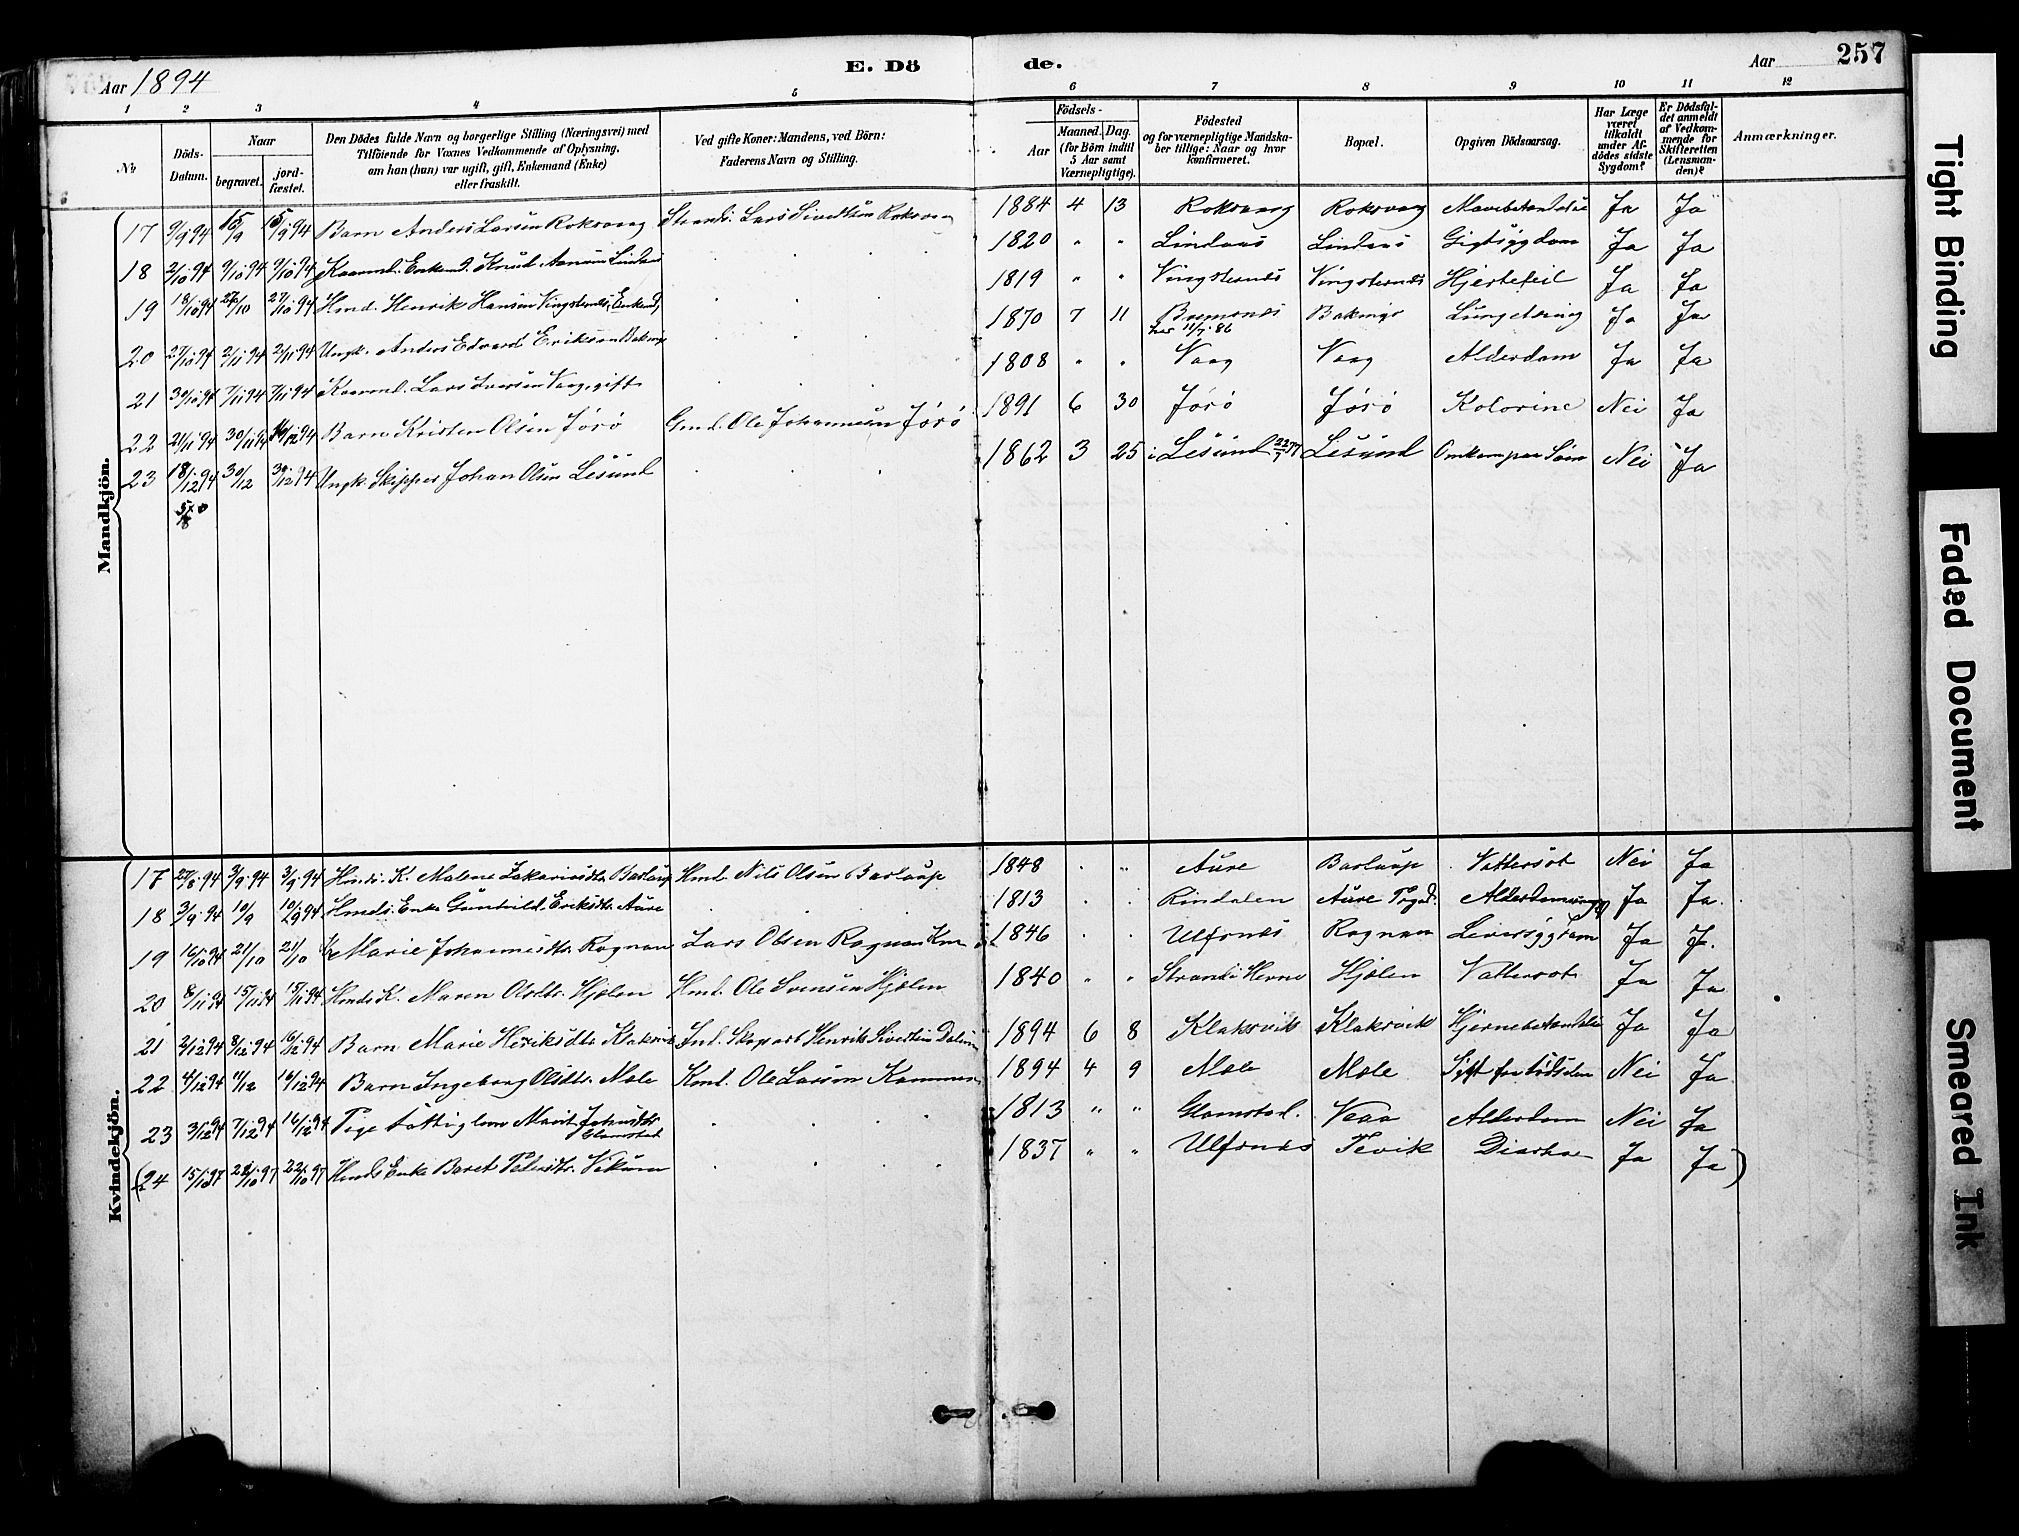 Aar 1894 E. Dö de. Aar 257
1 2 3 4 5 6 7 8 9 10 11 12
No Döds-Datum. Naar begravet. jord-fæstet. Den Dödes fulde Navn og borgerlige Stilling (Næringsvei) med Tilföiende for Voxnes Vedkommende af Oplysning, om han (hun) var ugift, gift, Enkemand (Enke) eller fraskilt. Ved gifte Koner: Mandens, ved Börn: Faderens Navn og Stilling. Födsels- Aar Maaned. Dag. (for Börn indtil 5 Aar samt Værnepligtige). Födested og for værnepligtige Mandskaber tillige: Naar og hvor konfirmeret. Bopæl. Opgiven Dödsaarsag. Har Læge været tilkaldt under Afdödes sidste Sygdom? Er Dödsfaldet anmeldt af Vedkommende for Skifteretten (Lensmanden)? Anmærkninger.
Mandkjön.
17 9/9 94 15/9 15/9 94 Barn Anders Larsen Roksvaag Lars Sivertsen 1884 4 13 Roksvaag Roksvaag Ja Ja
18 2/10 94 9/10 94 9/10 94 Kaarmd. Enkemd. Knut Lindaas 1820 " " Lindaas Lindaas Gigtsygdom Ja Ja
19 18/10 94 27/10 27/10 94 Hmd. Henrik Hansen Vingsternes, Enkemd. 1819 " " Vingsternes Vingsternes Hjertefeil Ja Ja
20 27/10 94 2/11 94 2/11 94 Ungk. Anders Edvard Eriksen 1870 7 11 Bremsnes 11/7 86 Ja Ja
21 30/10 94 7/11 94 7/11 94 Kaarmd. Lars Iversen Vaag, gift 1808 " " Vaag Vaag Alderdom Ja Ja
22 21/11 94 30/11 94 16/12 94 Barn Kristen Olsen Jørø Gmd. Ole Johannesen Jørø 1891 6 30 Jørø Jørø Kolorine Nei Ja
23 18/12 94 30/12 30/12 94 Ungk. Skipper Johan Olsen Lesund 1862 3 25 i Lesund Lesund Omkom paa Søen Nei Ja
Kvindekjön.
17 27/8 94 3/9 94 3/9 94 Hmds. K. Malene Zakariasdtr. Barlaup Hmd. Nils Olsen Barlaup 1848 " " Aure Barlaup Vattersot Nei Ja
18 3/9 94 10/9 10/9 94 Hmds. Enke Gunhild Eriksdtr. Aure 1813 " " Rindalen Aure Ja Ja.
19 16/10 94 21/10 21/10 Marie Johannesdtr. Rognan Lars Olsen Rognan 1846 " " Ulfsnes Rognan Leversygdom Ja Ja.
20 8/11 94 15/11 94 15/11 94 Hmds K. Maren Olsdtr. Hjølen Hmd. Ole Svensen Hjølen 1840 " " Strand i Hevne Hjølen Vattersot Ja Ja
21 2/12 94 8/12 94 16/12 94 Barn Marie Henriksdtr. Klaksvik Henrik Sivertsen 1894 6 8 Klaksvik Klaksvik Hjernebetændelse Ja Ja
22 4/12 94 11/12 16/12 94 Barn Ingeborg Olsdtr. Mole Ole Larsen 1894 4 9 Mole Mole Nei Ja
23 3/12 94 7/12 94 16/12 94 Marit Glamstad 1813 " " Glamstad. Veaa Alderdom Nei Ja
(24 15/10 97 22/10 97 22/10 97 Hmds Enke Beret 1837 " " Ulfsnes Tevik Ja Ja)
Tight Binding
Faded Document
Smeared Ink